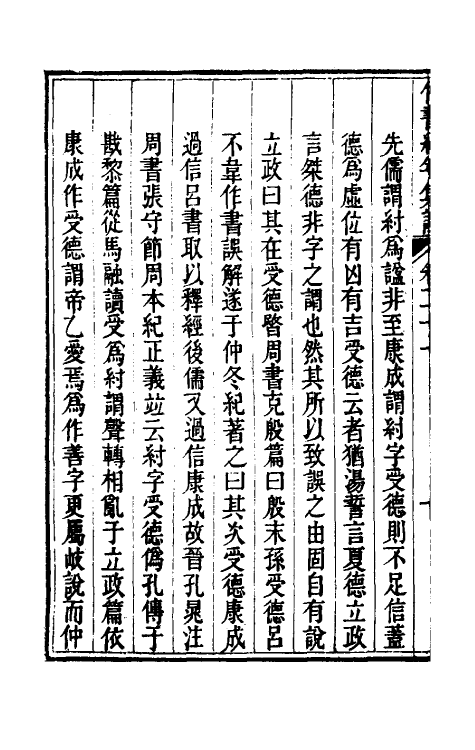 先儒謂紂爲諡非至康成謂紂字受德則不足信蓋
德爲虛位有凶有吉受德云者猶湯誓言夏德立政
言桀德非字之謂也然其所以致誤之由固自有說
立政曰其在受德暋周書克殷篇曰殷末孫受德呂
不韋作書誤解遂于仲冬紀著之曰其次受德康成
過信呂書取以釋經後儒又過信康成故晉孔晁注
周書張守節周本紀正義竝云紂字受德僞孔傳于
戡黎篇從馬融讀受爲紂謂聲轉相亂于立政篇依
康成作受德謂帝乙愛焉爲作善字更屬岐說而仲